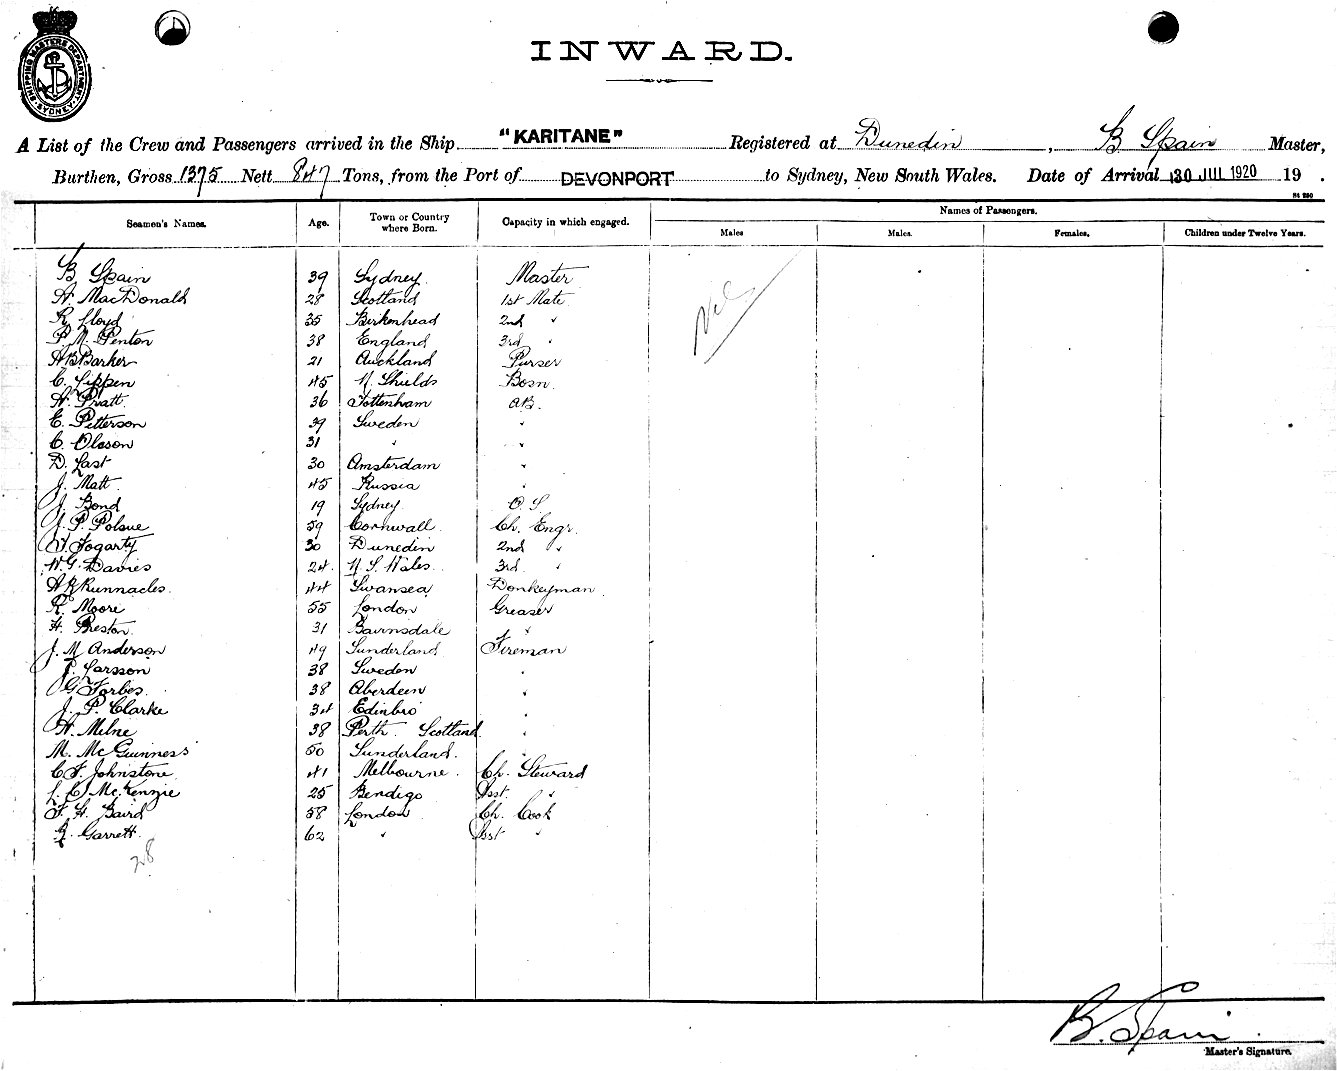 SHIPPING MASTERS DEPARTMENT. SYDNEY.
INWARD.
A List of the Crew and Passengers arrived in the Ship "KARITANE" Registered at Dunedin, B. Spain Master,
Burthen, Gross 1375 Nett 847 Tons, from the Port of DEVONPORT to Sydney, New South Wales. Date of Arrival 30 JUL 1920 19 .
Seamen's Names. Age. Town or Country where Born. Capacity in which engaged. Names of Passengers.
Males Males. Females. Children under Twelve Years.
B Spain 39 Sydney Master Nil
A. MacDonald 28 Scotland 1st Mate
R. Lloyd 35 Birkenhead 2nd "
P. M. Penton 38 England 3rd "
A B Barker 21 Auckland Purser
C. Tippen 45 N. Shields Bosn.
A. Pratt 36 Tottenham AB.
E. Petterson 39 Sweden "
C. Oleson 31 " "
D. Last 30 Amsterdam "
J. Matt 45 Russia "
J. Bond 19 Sydney O.S.
J. P. Polsue 59 Cornwall Ch. Engr.
J. Fogarty 30 Dunedin 2nd "
W. G. Davies 24 N. S. Wales 3rd "
A R Runnacles 44 Swansea Donkeyman
R. Moore 55 London Greaser
H. Preston 31 Bairnsdale "
J. M. Anderson 49 Sunderland Fireman
Larsson 38 Sweden "
G. Forbes 38 Aberdeen "
J. P. Clarke 34 Edinbro "
A. Milne 38 Perth Scotland "
M. McGuinness 50 Sunderland. "
C F. Johnstone 41 Melbourne. Ch. Steward
L. C. McKenzie 25 Bendigo Asst. "
F. H. Baird 58 London Ch. Cook
Garrett 62 " Asst "
28
B. Spain
Master's Signature.